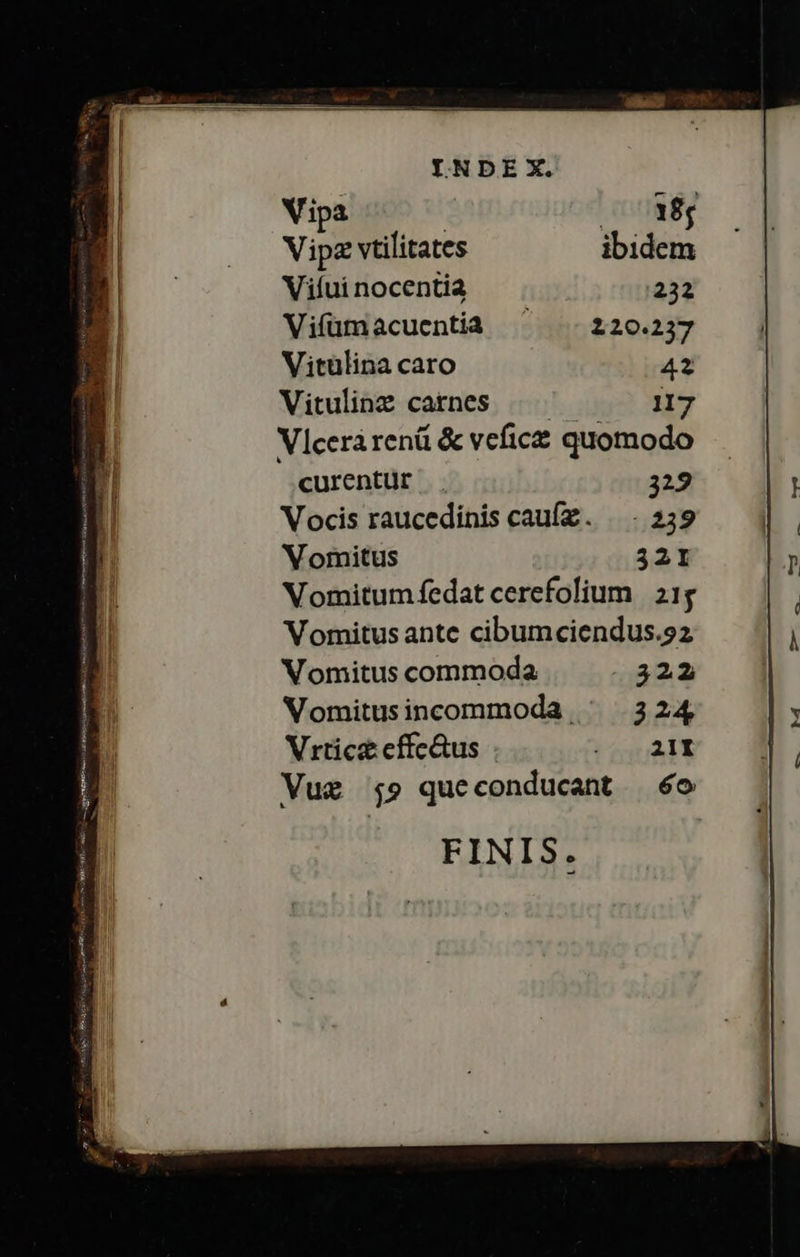 INDEX.
Vipa 185
Vipæ vtilitates ibidem
Viſui nocentia 232
Viſũm acuentia 220.237
Vitulina caro 42
Vitulinæ carnes 117
Vlcera renũ & veſicæ quomodo
curentur 329
Vocis raucedinis cauſæ. 239
Vomitus 321
Vomitum ſedat cerefolium 215
Vomitus ante cibum ciendus. 92
Vomitus commoda 322
Vomitus incommoda 324
Vrticæ effectus 211
Vuæ 59 que conducant 60
FINIS.